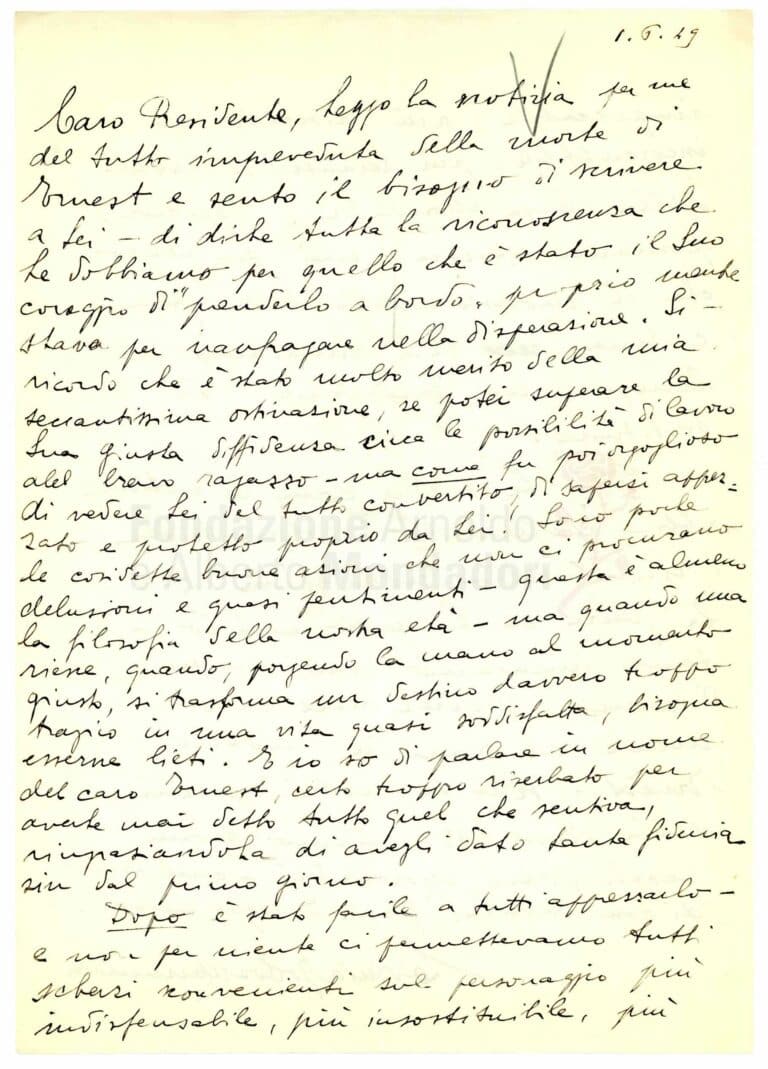 1.6.29
Caro Presidente, leggo la notizia per me
del tutto impreveduta della morte di
Ernest e sento il bisogno di scrivere
a Lei – di dirLe tutta la riconoscenza che
Le dobbiamo per quello che è stato il Suo
coraggio di "prenderlo a bordo" proprio mentre
stava per naufragare nella disperazione. Si
ricordo che è stato molto merito della mia
seccantissima ostinazione, se potei superare la
Sua giusta diffidenza circa le possibilità di lavoro
del bravo ragazzo – ma come fu poi orgoglioso
di vedere Lei del tutto convertito, di sapersi apprez-
zato e protetto proprio da Lei! Sono poche
le cosidette buone azioni che non ci procurano
delusioni e quasi pentimenti – questa è almeno
la filosofia della nostra età – ma quando una
riesce, quando, porgendo la mano al momento
giusto, si trasforma un destino davvero troppo
tragico in una vita quasi soddisfatta, bisogna
esserne lieti. E io so di parlare in nome
del caro Ernest, certo troppo riserbato per
averLe mai detto tutto quel che sentiva,
ringraziandoLa di avergli dato tanta fiducia
sin dal primo giorno.
Dopo è stato facile a tutti apprezzarlo –
e non per niente ci permettevamo tutti
scherzi sconvenienti sul personaggio più
indispensabile, più insostituibile, più
Fondazione Arnoldo
e Alberto Mondadori